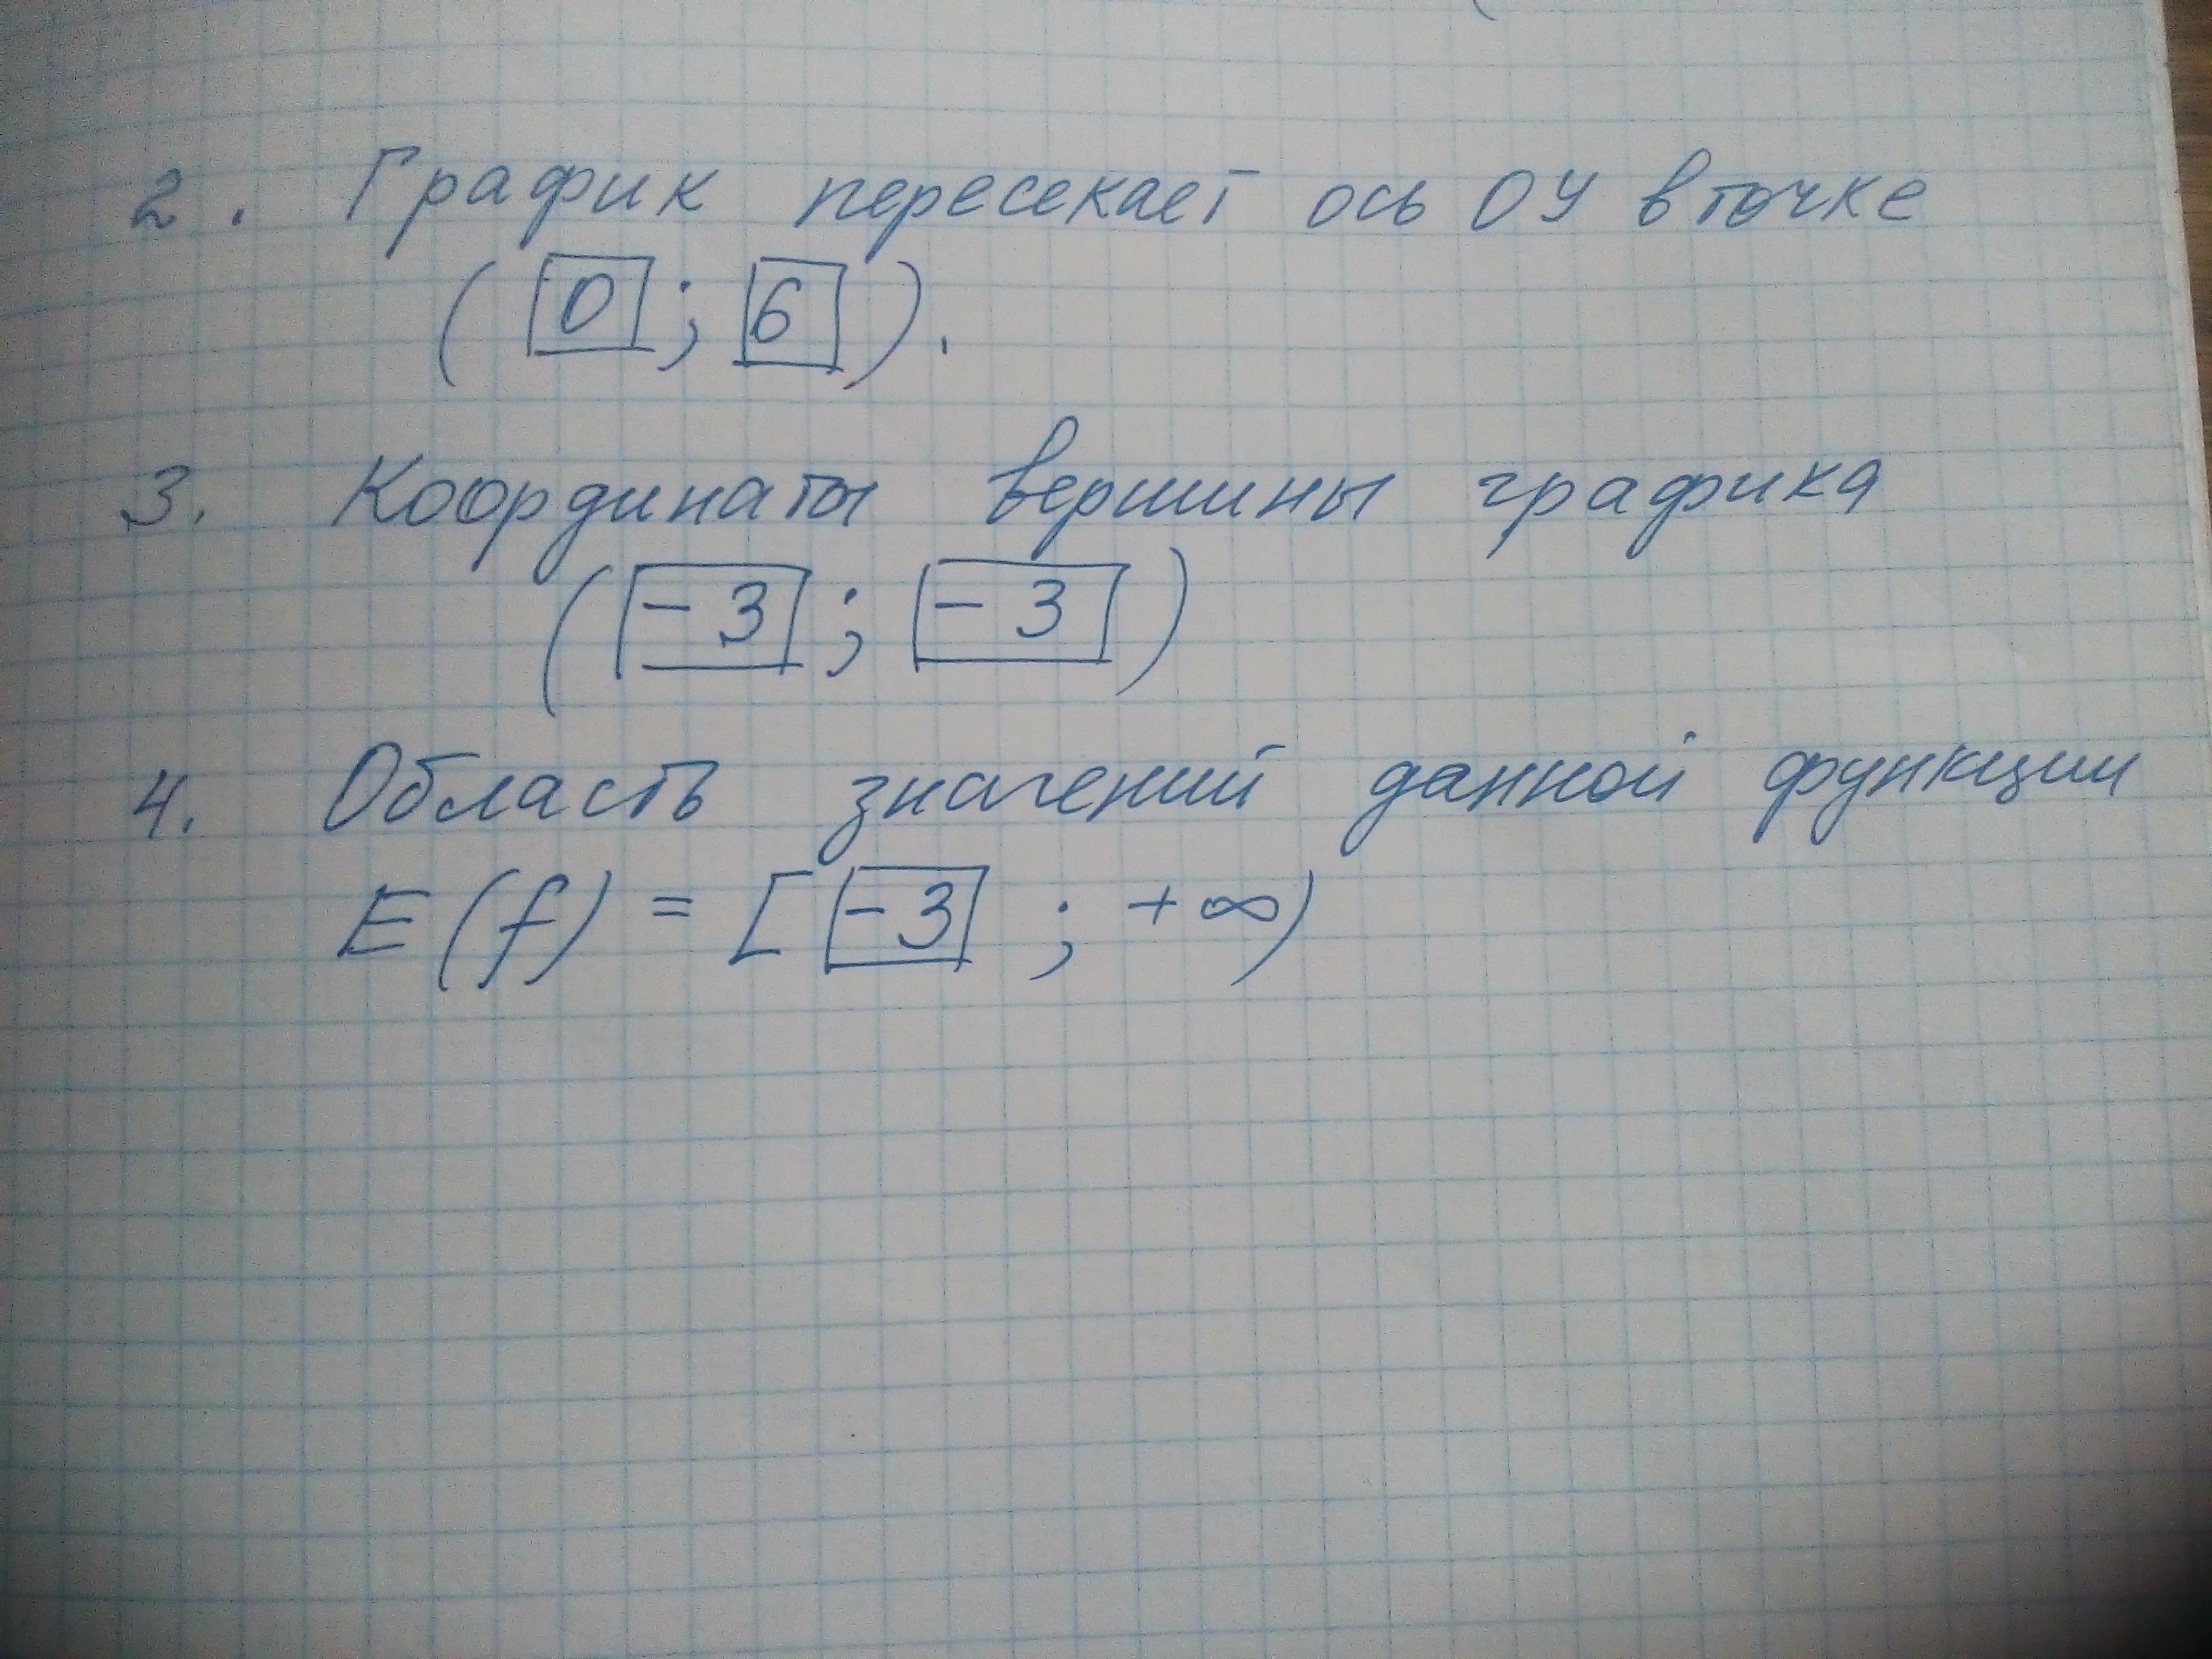 2. График пересекает ось ОУ в точке
( 0 ; 6 ).
3. Координаты вершины графика
( -3 ; -3 )
4. Область значений данной функции
E(f) = [ -3 ; +∞)